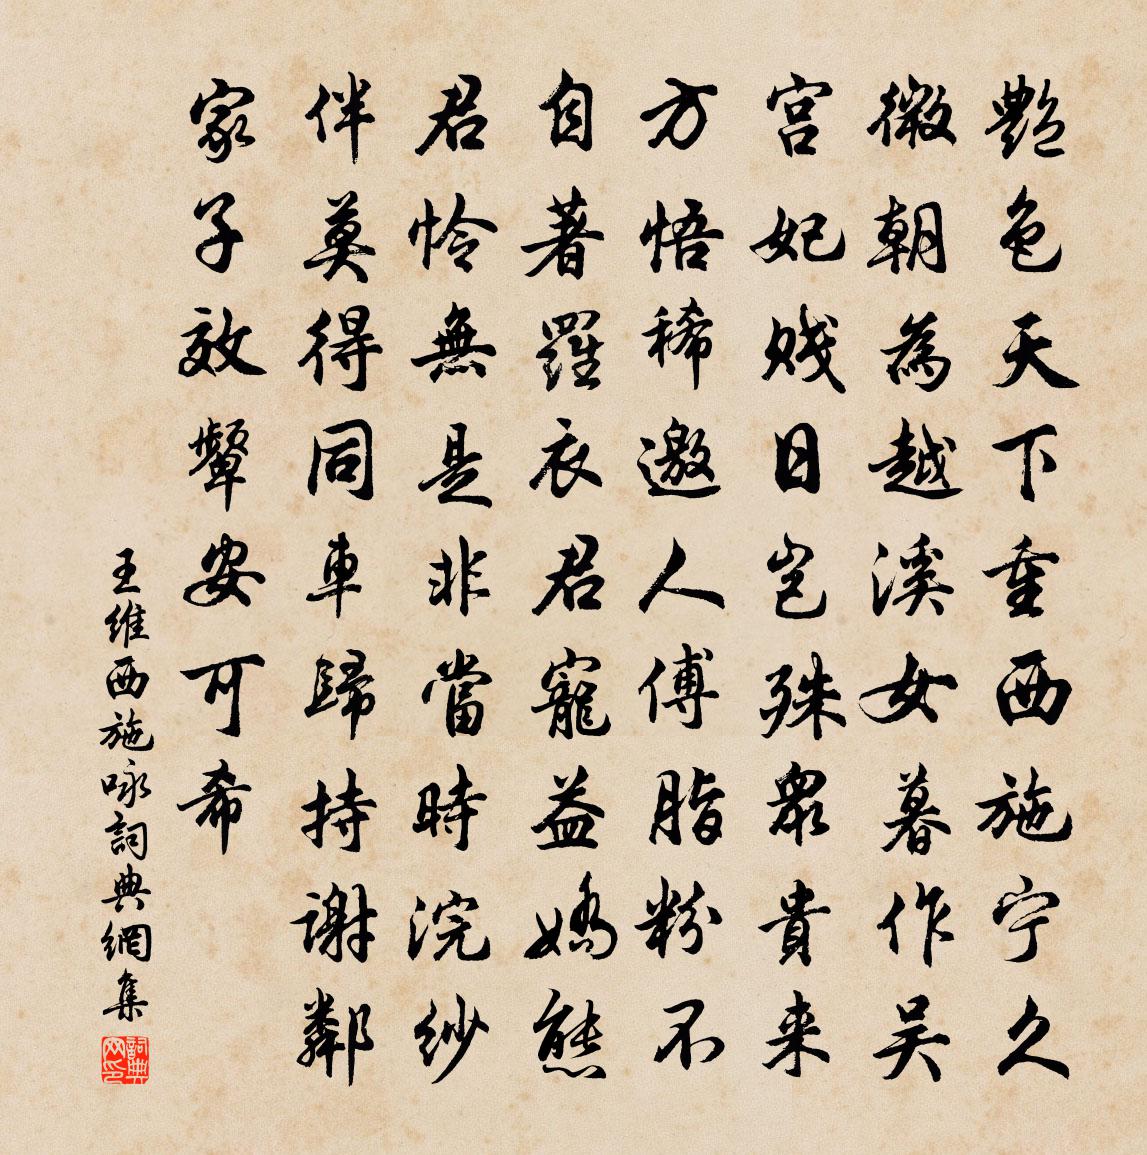 艷色天下重西施宁久
微朝為越溪女暮作吴
宫妃賤日岂殊眾貴来
方悟稀邀人傅脂粉不
自著羅衣君寵益嬌態
君怜無是非當時浣紗
伴莫得同車歸持謝鄰
家子效顰安可希
王維西施咏詞典網集
詞典网印